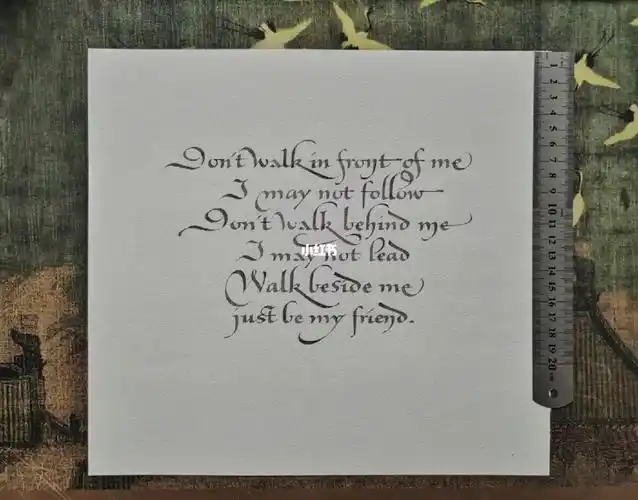 Don't walk in front of me
I may not follow
Don't walk behind me
I may not lead
Walk beside me
just be my friend.
小红书
1 2 3 4 5 6 7 8 9 10 11 12 13 14 15 16 17 18 19 20